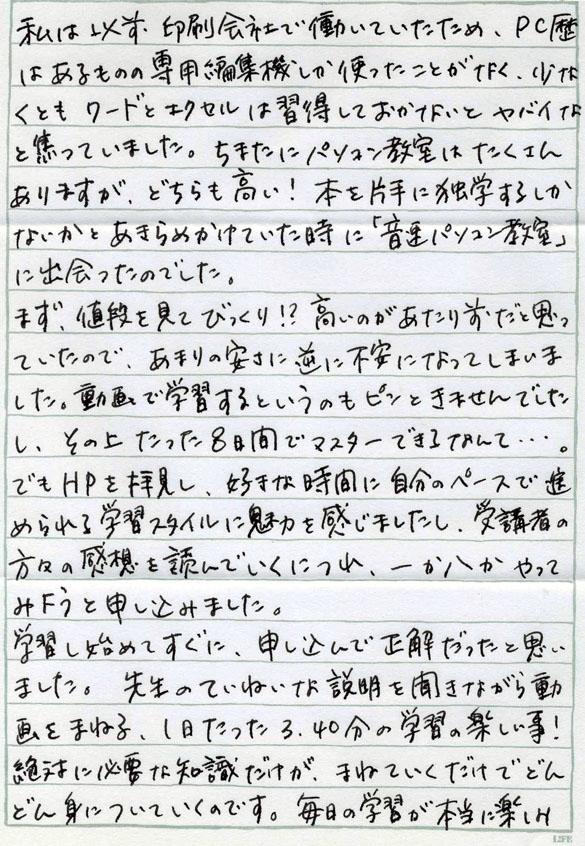 私は以前 印刷会社で働いていたため、PC歴
はあるものの専用編集機しか使ったことがなく、少な
くとも ワードとエクセルは習得しておかないと ヤバイな
と焦っていました。ちまたにパソコン教室は たくさん
ありますが、どちらも高い！ 本を片手に独学するしか
ないかと あきらめかけていた時に「音速パソコン教室」
に出会ったのでした。
まず、値段を見て びっくり!? 高いのがあたり前だと思っ
ていたので、あまりの安さに逆に不安になってしまいま
した。動画で学習するというのも ピンときませんでした
し、その上 たった8日間でマスターできるなんて・・・。
でもHPを拝見し、好きな時間に自分のペースで進
められる学習スタイルに魅力を感じましたし、受講者の
方々の感想を読んでいくにつれ、一か八か やって
みようと申し込みました。
学習し始めてすぐに、申し込んで正解だったと思い
ました。先生のていねいな説明を聞きながら動
画をまねる、1日たった3、40分の学習の楽しい事！
絶対に必要な知識だけが、まねていくだけでどん
どん身についていくのです。毎日の学習が本当に楽しみ
LIFE